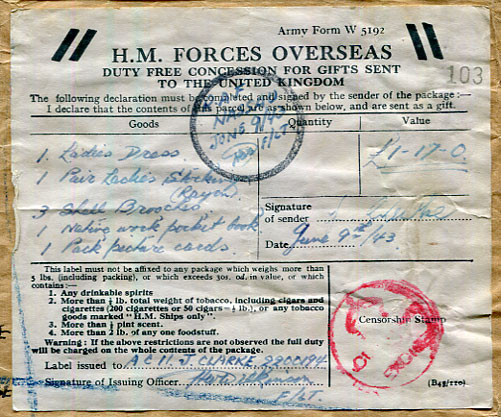 Army Form W 5192
H.M. FORCES OVERSEAS
DUTY FREE CONCESSION FOR GIFTS SENT
TO THE UNITED KINGDOM
103
The following declaration must be completed and signed by the sender of the package :—
I declare that the contents of this parcel are as shown below, and are sent as a gift.
Goods Quantity Value
NASSAU
JUNE 9/43
F/LT
1 Ladies Dress
£1-17-0
1 Pair Ladies Stockings
(Rayon)
3 Shell Brooches
1 Native work pocket book
1 Pack picture cards
Signature
of sender
Date June 9th/43
This label must not be affixed to any package which weighs more than
5 lbs. (including packing), or which exceeds 30s. 0d. in value, or which
contains :—
1. Any drinkable spirits
2. More than ½ lb. total weight of tobacco, including cigars and
cigarettes (200 cigarettes or 50 cigars = ½ lb.), or any tobacco
goods marked " H.M. Ships only "
3. More than ¼ pint scent.
4. More than 2 lb. of any one foodstuff.
Warning : If the above restrictions are not observed the full duty
will be charged on the whole contents of the package.
Label issued to A C H. J. CLARKE 2200194
Signature of Issuing Officer.
F/LT.
Censorship Stamp
(B48/220)